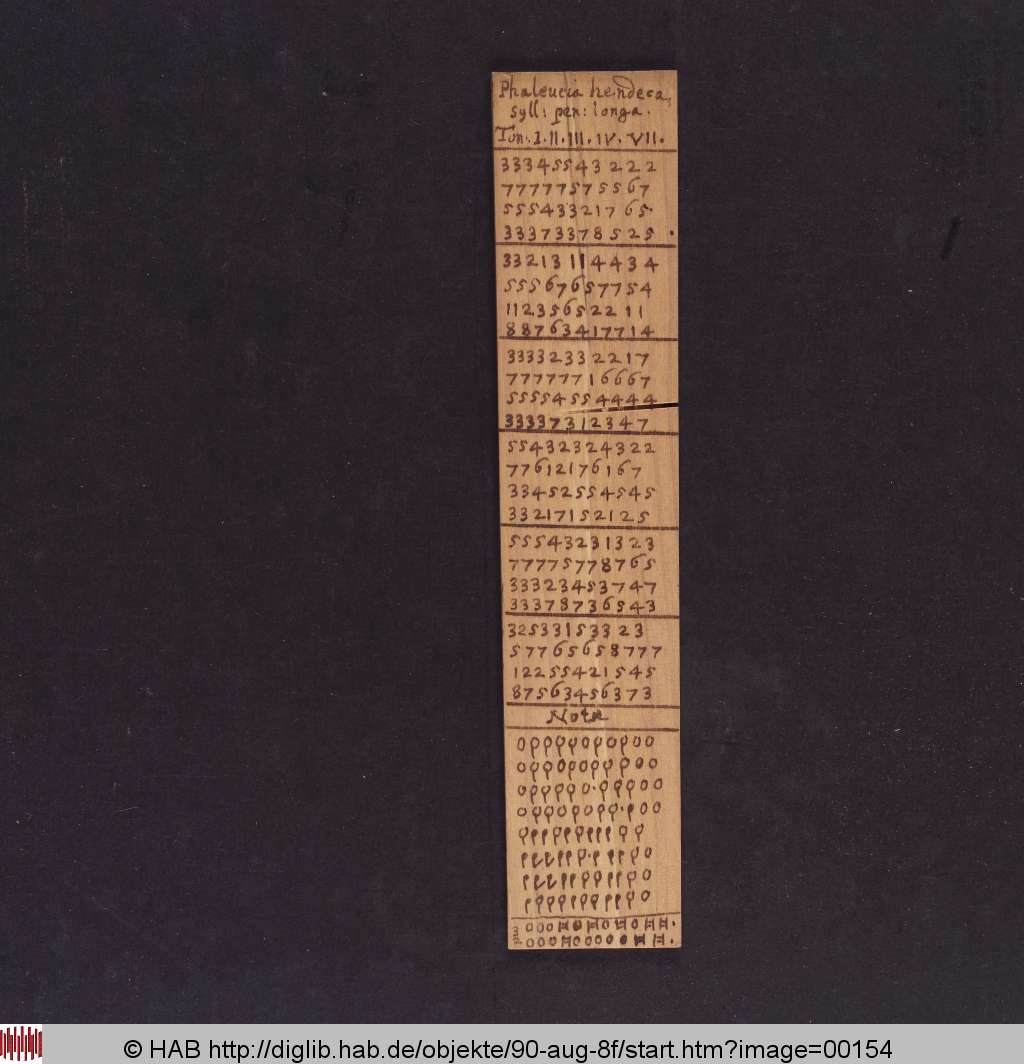 Phaleucia hendeca,
syll: pen: longa.
Ton. I. II. III. IV. VII.
3 3 3 4 5 5 4 3 2 2 2
7 7 7 7 7 5 7 5 5 6 7
5 5 5 4 3 3 2 1 7 6 5
3 3 3 7 3 3 7 8 5 2 5
3 3 2 1 3 1 1 4 4 3 4
5 5 5 6 7 6 5 7 7 5 4
1 1 2 3 5 6 5 2 2 1 1
8 8 7 6 3 4 1 7 7 1 4
3 3 3 3 2 3 3 2 2 1 7
7 7 7 7 7 7 1 6 6 6 7
5 5 5 5 4 5 5 4 4 4 4
3 3 3 3 7 3 1 2 3 4 7
5 5 4 3 2 3 2 4 3 2 2
7 7 6 1 2 1 7 6 1 6 7
3 3 4 5 2 5 5 4 5 4 5
3 3 2 1 7 1 5 2 1 2 5
5 5 5 4 3 2 3 1 3 2 3
7 7 7 7 5 7 7 8 7 6 5
3 3 3 2 3 4 5 3 7 4 7
3 3 3 7 8 7 3 6 5 4 3
3 2 5 3 3 1 5 3 3 2 3
5 7 7 6 5 6 5 8 7 7 7
1 2 2 5 5 4 2 1 5 4 5
8 7 5 6 3 4 5 6 3 7 3
Notæ
© HAB http://diglib.hab.de/objekte/90-aug-8f/start.htm?image=00154